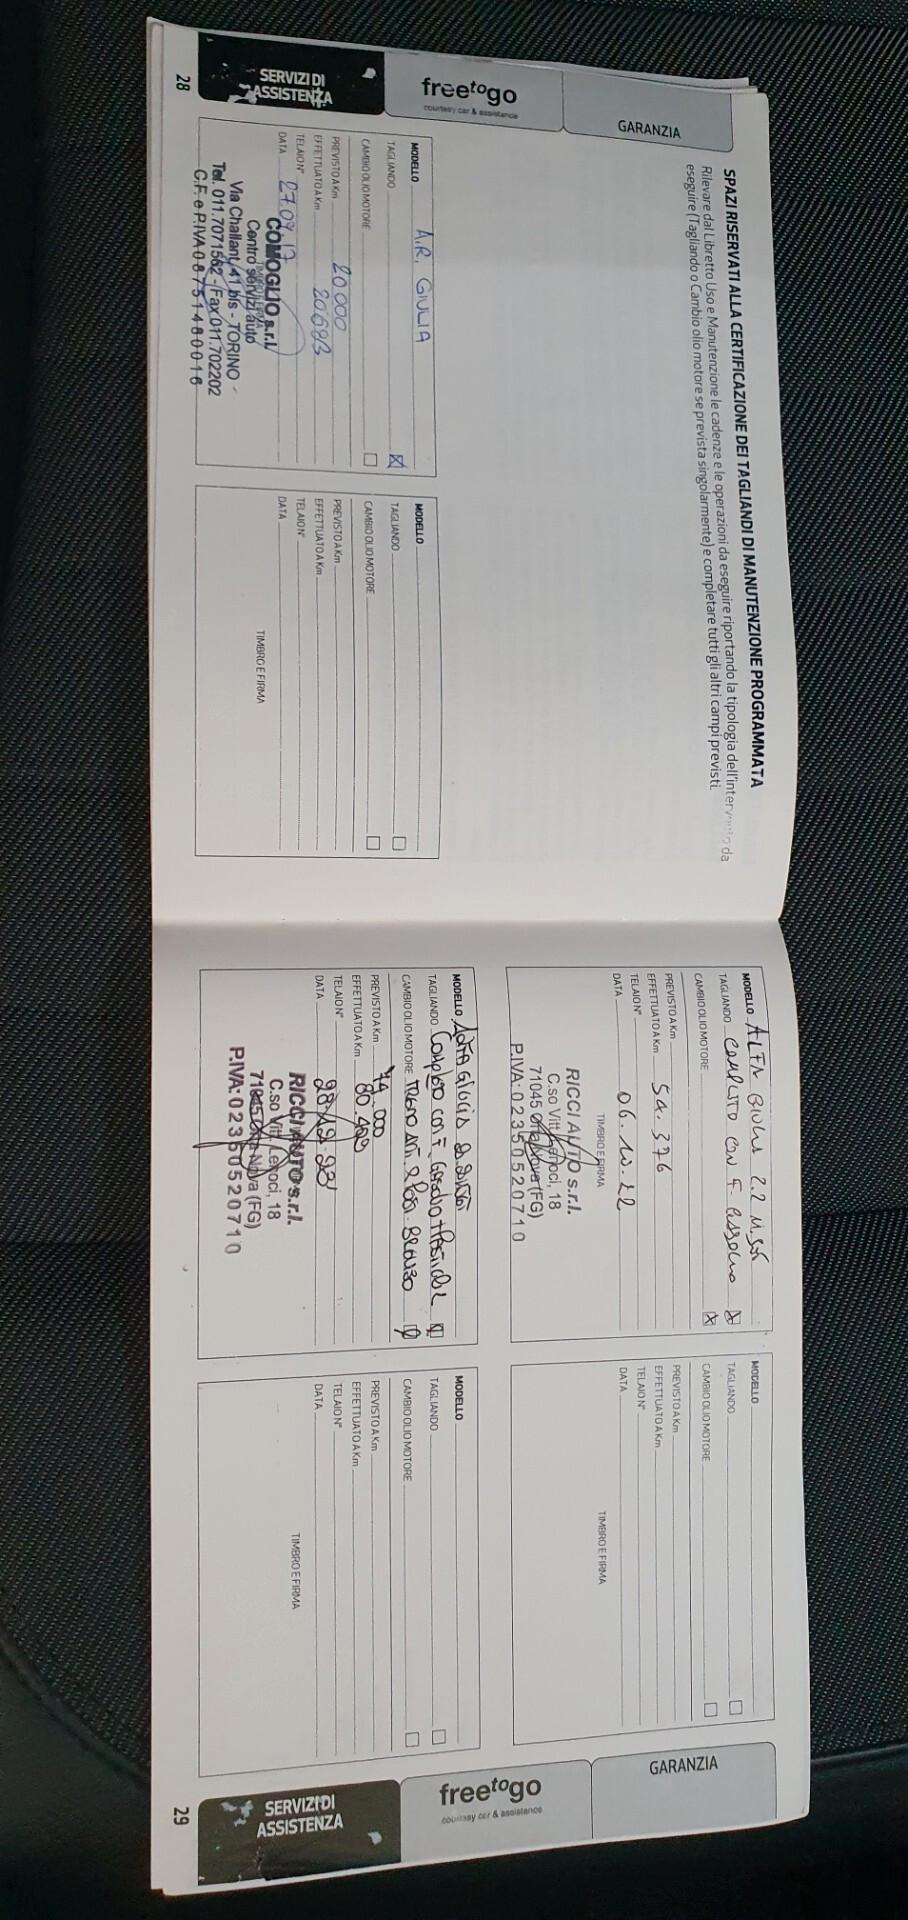 GARANZIA
freetogo
courtesy car & assistance
SERVIZI DI
ASSISTENZA
28
SPAZI RISERVATI ALLA CERTIFICAZIONE DEI TAGLIANDI DI MANUTENZIONE PROGRAMMATA
Rilevare dal Libretto Uso e Manutenzione le cadenze e le operazioni da eseguire riportando la tipologia dell'intervento da
eseguire (Tagliando o Cambio olio motore se prevista singolarmente) e completare tutti gli altri campi previsti.
MODELLO A.R. GIULIA
TAGLIANDO
CAMBIO OLIO MOTORE
PREVISTO A Km 20.000
EFFETTUATO A Km 20.693
TELAIO N°
DATA 27.09.17
COMOGLIO s.r.l.
Centro servizi auto
Via Challant, 41 bis - TORINO -
Tel. 011.7071562 - Fax 011.702202
C.F. e P.IVA 08751480016
MODELLO
TAGLIANDO
CAMBIO OLIO MOTORE
PREVISTO A Km
EFFETTUATO A Km
TELAIO N°
DATA
TIMBRO E FIRMA
MODELLO ALFA GIULIA 2.2
TAGLIANDO COMPLETO CON F.
CAMBIO OLIO MOTORE
PREVISTO A Km
EFFETTUATO A Km 54.376
TELAIO N°
DATA 06.10.22
TIMBRO E FIRMA
RICCI AUTO s.r.l.
C.so Vitt. Lenoci, 18
71045 Orta Nova (FG)
P.IVA: 02350520710
MODELLO
TAGLIANDO
CAMBIO OLIO MOTORE
PREVISTO A Km
EFFETTUATO A Km
TELAIO N°
DATA
TIMBRO E FIRMA
MODELLO
TAGLIANDO Completo con F.
CAMBIO OLIO MOTORE
PREVISTO A Km 74.000
EFFETTUATO A Km
TELAIO N°
DATA
RICCI AUTO s.r.l.
C.so Vitt. Lenoci, 18
71045 Orta Nova (FG)
P.IVA: 02350520710
MODELLO
TAGLIANDO
CAMBIO OLIO MOTORE
PREVISTO A Km
EFFETTUATO A Km
TELAIO N°
DATA
TIMBRO E FIRMA
GARANZIA
freetogo
courtesy car & assistance
SERVIZI DI
ASSISTENZA
29